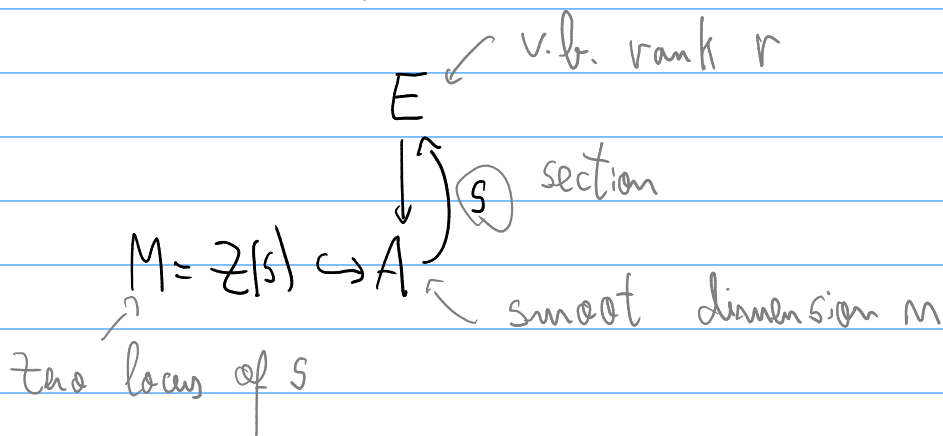 v.b. rank r
E
s section
M = Z(s) ↪ A
smoot dimension n
zero locus of s